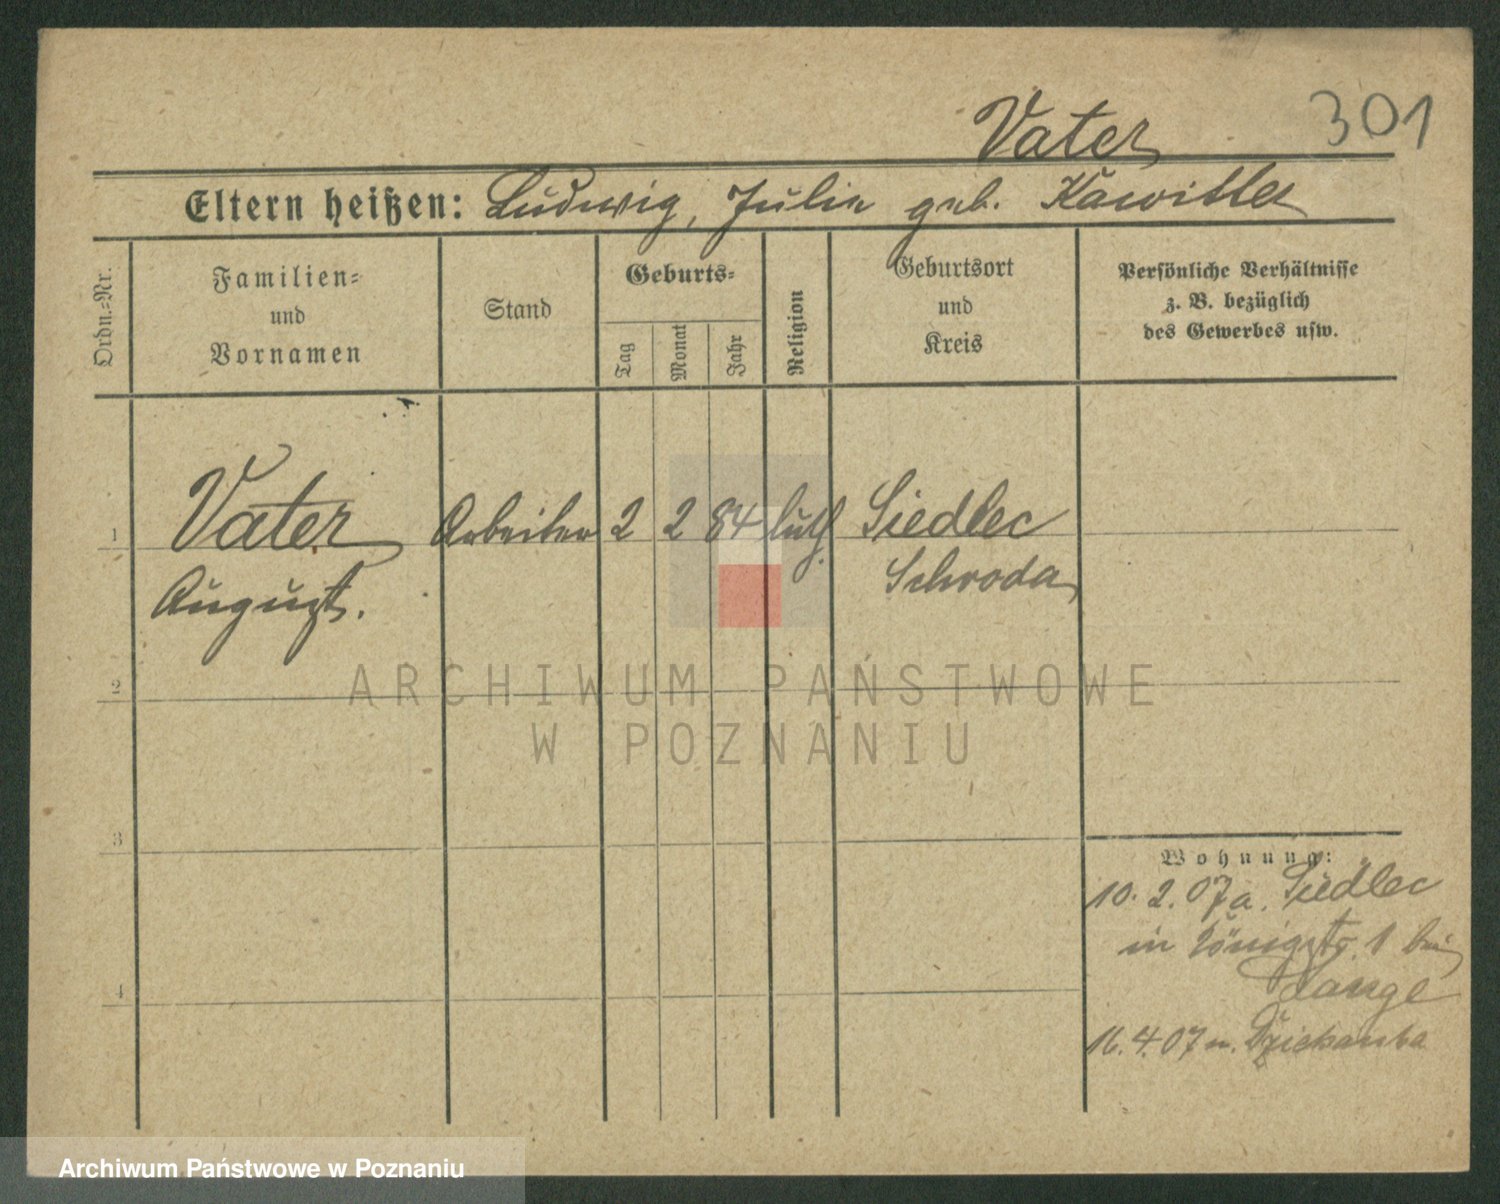 Vater 301
Eltern heißen: Ludwig, Julie geb. Kawitter
Ordn.-Nr.
Familien-
und
Vornamen
Stand
Geburts-
Tag
Monat
Jahr
Religion
Geburtsort
und
Kreis
Persönliche Verhältnisse
z. B. bezüglich
des Gewerbes usw.
1 Vater Arbeiter 2 2 84 luth. Siedlec
August. Schroda
2
ARCHIWUM PAŃSTWOWE
W POZNANIU
3
Wohnung:
10. 2. 07 a. Siedlec
in Königstr. 1 bei
Lange
4
16. 4. 07 n.
Archiwum Państwowe w Poznaniu